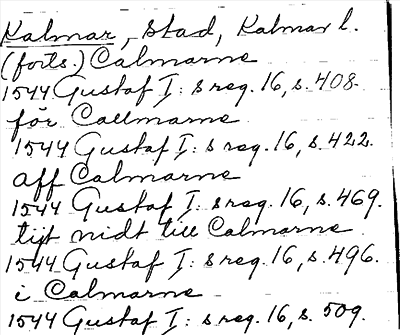 Kalmar, stad, Kalmar l.
(forts.) Calmarne
1544 Gustaf I: s reg. 16, s. 408.
för Callmarne
1544 Gustaf I: s reg. 16, s. 422.
aff Calmarne
1544 Gustaf I: s reg. 16, s. 469.
tijt nidt till Calmarne
1544 Gustaf I: s reg. 16, s. 496.
i Calmarne
1544 Gustaf I: s reg. 16, s. 509.